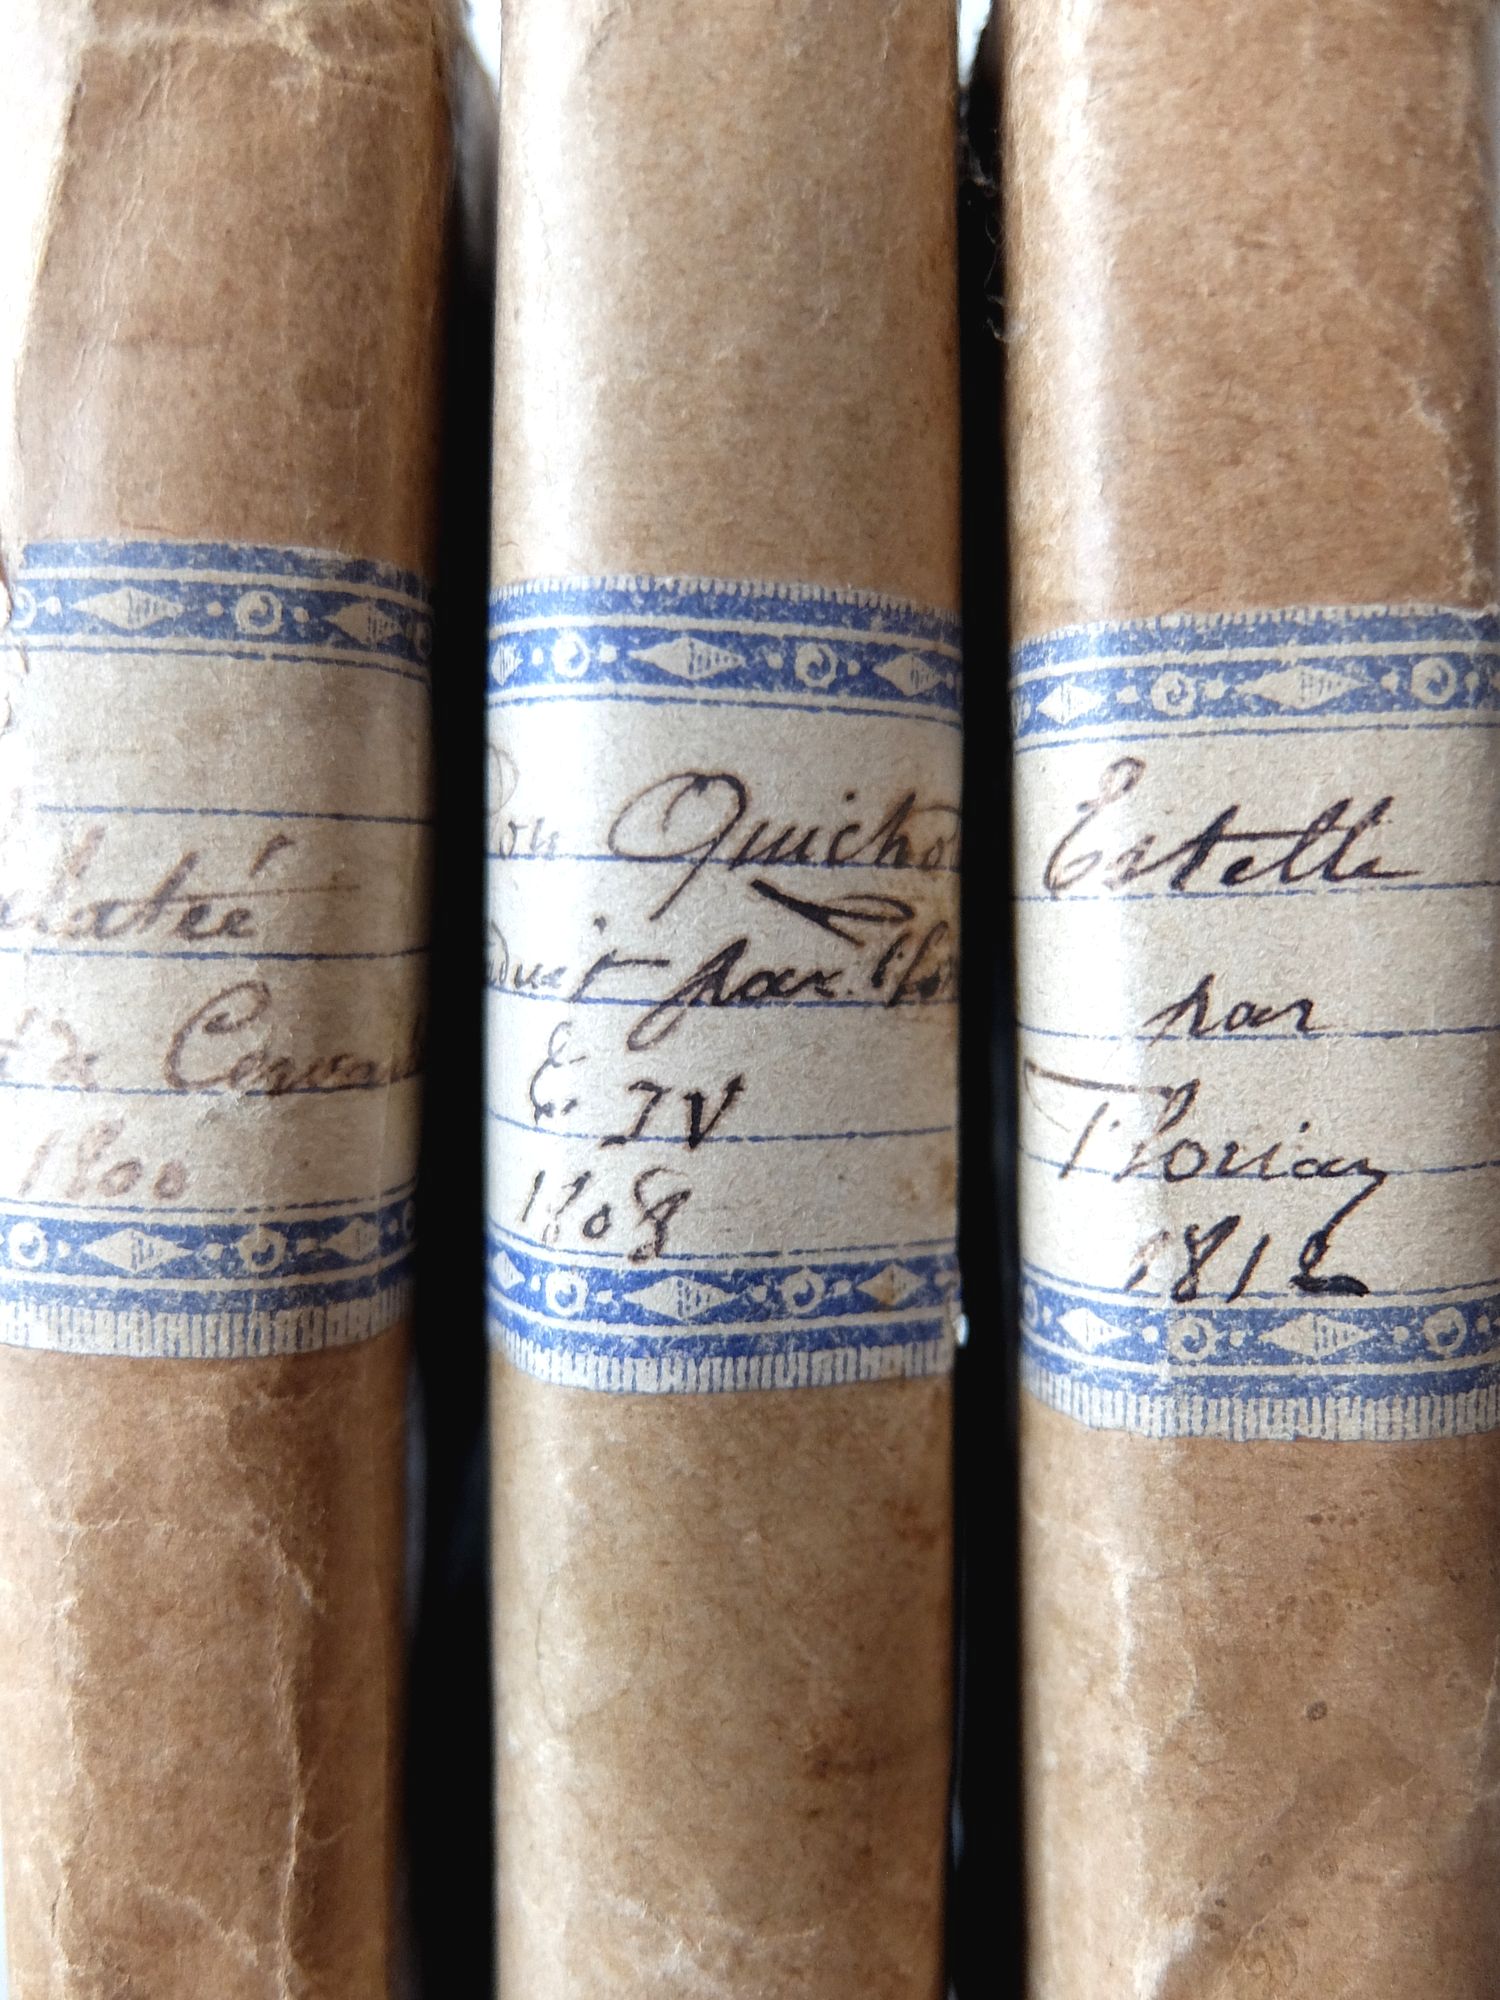 latée
de Cervant
1800
Don Quichot
duit par Flori
t. IV
1808
Estelle
par
Florian
1812